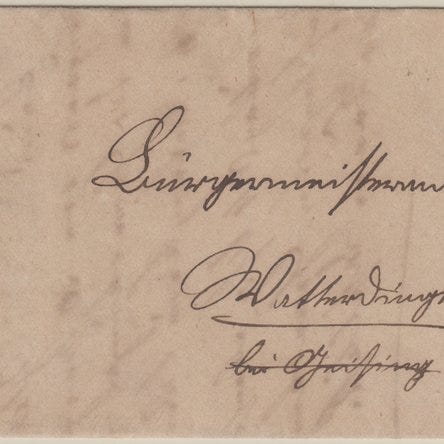 Bürgermeisteram
Watterdinge
bei Geising